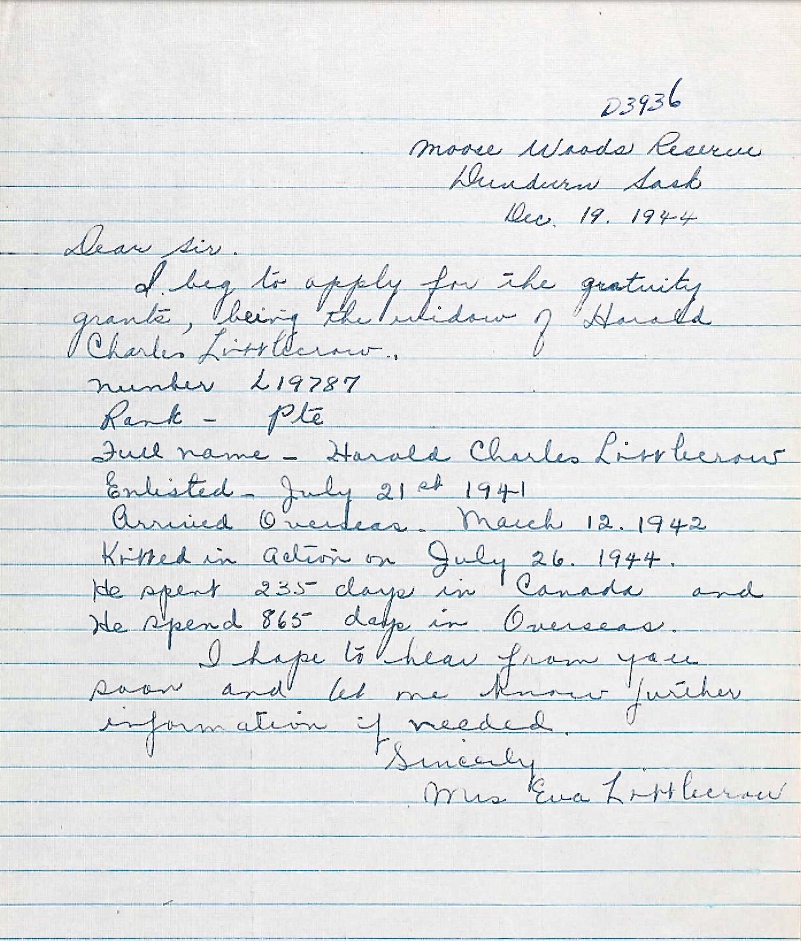 D3936
Moose Woods Reserve
Dundurn Sask
Dec. 19. 1944
Dear Sir.
I beg to apply for the gratuity
grants, being the widow of Harold
Charles Littlecrow.,
number L19787
Rank - Pte
Full name - Harold Charles Littlecrow
Enlisted - July 21st 1941
Arrived Overseas. March 12. 1942
Killed in action on July 26. 1944.
He spent 235 days in Canada and
He spend 865 days in Overseas.
I hope to hear from you
soon and let me know further
information if needed.
Sincerly
Mrs Eva Littlecrow